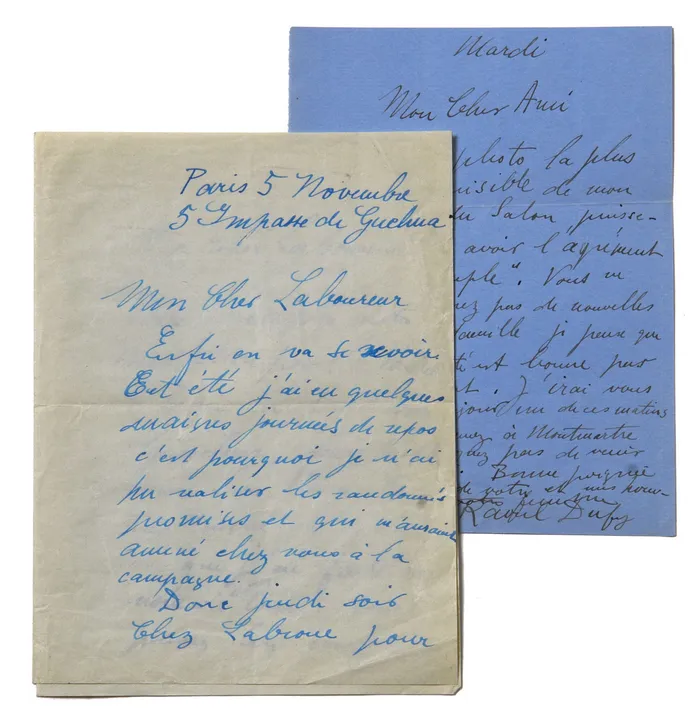 Paris 5 Novembre
5 Impasse de Guelma
Mon Cher Laboureur
Enfin on va se revoir.
Cet été j'ai eu quelques
maigres journées de repos
c'est pourquoi je n'ai
pu réaliser les randonnées
promises et qui m'auraient
amené chez vous à la
campagne.
Donc jeudi soir
chez Labroue pour
Mardi
Mon Cher Ami
photo la plus
isible de mon
du Salon puisse-
avoir l'agrément
uple". Vous ne
ez pas de nouvelles
famille je pense que
té est bonne pas
t. J'irai vous
jour un de ces matins
enez à Montmartre
uez pas de venir
Bonne poignée
de votre et mes hom-
femme
Raoul Dufy